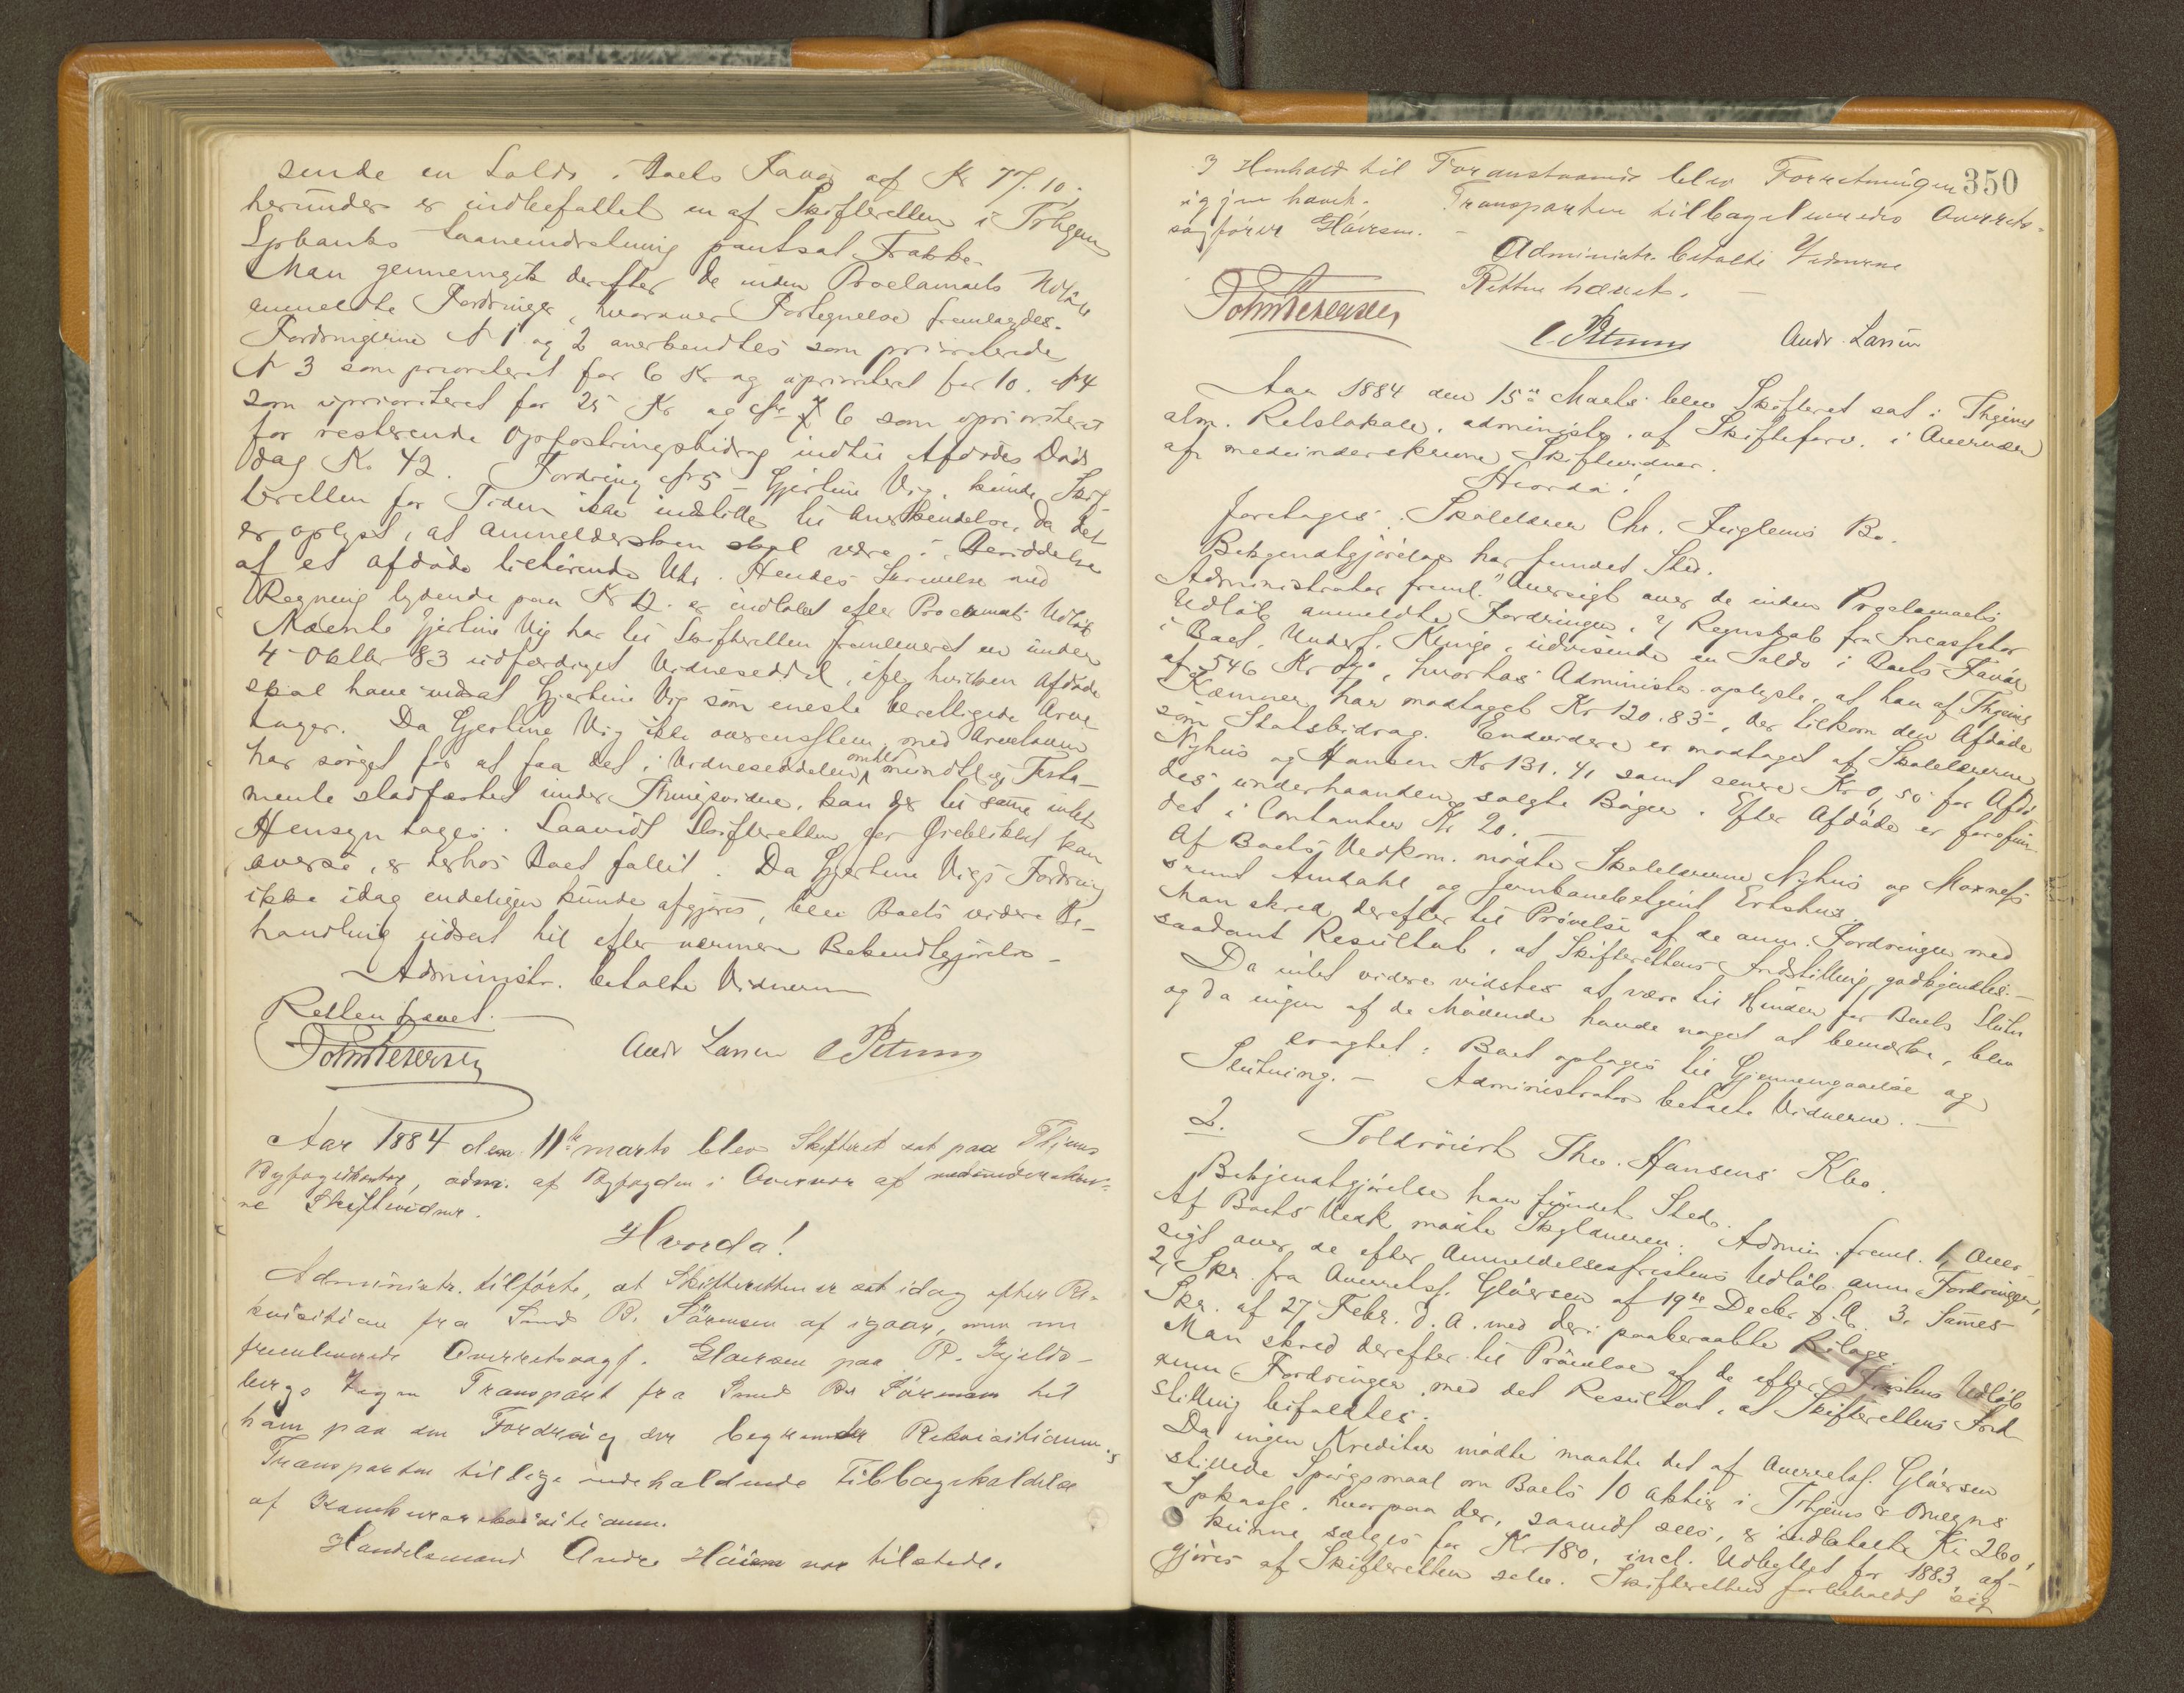 sende en Saldo i Boets Favør af Kr 77.10,
herunder er indbefattet en af Skifteretten i Trhjem
Spbanks Laaneindretning pantsat Frakke.
Man gennemgik derefter de inden Proclamaets Udløb
anmeldte Fordringer, hvorover Fortegnelse fremlagdes.
Fordringerne N 1 og 2 anerkendtes som prioriterede
N 3 som prioriteret for 6 Kr og uprioriteret for 10. N 4
som uprioriteret for 25 Kr og N 6 som uprioriteret
for resterende Opfostringsbidrag indtil Afdødes Døds
dag Kr. 42. Fordring N 5 – Gjertine Vig, kunde Skif-
teretten for Tiden ikke indstille til Anerkendelse, da det
er oplyst, at Anmeldersken skal være i Besiddelse
af et afdøde tilhørende Uhr. Hendes Skrivelse med
Regning lydende paa Kr 12. er indløbet efter Proclamats Udløb
Nævnte Gjertine Vig har til Skifteretten fremleveret en under
4 Oktbr 83 udfærdiget Vidneseddel, ifølge hvilken Afdøde
skal have indsat Gjertine Vig som eneste berettigede Arve-
tager. Da Gjertine Vig ikke overensstem. med Arveloven
har sørget for at faa det i Vidneseddelen omhdl. mundtlige Testa-
mente stadfæstet under Thingsvidne, kan der til samme intet
Hensyn tages. Saavidt Skifteretten for Øieblikket kan
overse, er derhos Boet fallit. Da Gjertine Vigs Fordring
ikke idag endeligen kunde afgjøres, blev Boets videre Be-
handling udsat til efter nærmere Bekendtgjørelse –
Administr. betalte Vidnerne
Retten hævet. –
Andr Larsen
Aar 1884 den 11te marts blev Skifteret sat paa Thjems
Byfogedkontor, adm. af Byfogden i Overvær af medunderskrev-
ne Skiftevidner.
Hvorda!
Administr. tilførte, at Skifteretten er sat idag efter Re-
kvisition fra Smed B. Sørensen af igaar, men nu
fremleverede Overretssagf. Gløersen paa R. Kjelds-
bergs Vegne Transport fra Smed B. Sørensen til
ham paa den Fordring der begrunder Rekvisitionen.
Transporten tillige indeholdende Tilbagekaldelse
af Konkursrekvisitionen.
Handelsmand Andr. Høiem var tilstede.
350
I Henhold til Foranstaaende blev Forretningen
igjen hævet. Transporten tilbageleveredes Overrets-
sagfører Gløersen. –
Administr. betalte Vidnerne
Retten hævet. –
Andr. Larsen
Aar 1884 den 15de Marts blev Skifteret sat i Thjems
alm. Retslokale, administr. af Skifteforv. i Overvær
af medunderskrevne Skiftevidner.
Hvorda!
Foretages. Skolelærer Chr. Fuglems Bo.
Bekjendtgjørelse har fundet Sted.
Administrator freml. 1, Oversigt over de inden Proclamaets
Udløb anmeldte Fordringer, 2, Regnskab fra Incassator
i Boet, Underf. Klinge, udvisende en Saldo i Boets Favør
af 546 Kr , hvorhos Administr. oplyste, at han af Thjems
Kæmner har modtaget Kr 120.83, der tilkom den Afdøde
som Skolebidrag. Endvidere er modtaget af Skolelærerne
Nyhus og Hansen Kr 131.41 samt senere Kr 0,50 for Afdø-
des underhaanden solgte Bøger. Efter Afdøde er forefun-
det i Contanter Kr 20. –
Af Boets Vedkom. mødte Skolelærerne Nyhus og Moxnes
samt Amdahl og Jernbanebetjent Ertshus.
Man skred derefter til Prøvelse af de anm. Fordringer med
saadant Resultat, at Skifterettens Indstilling godkjendtes. –
Da intet videre vidstes at være til Hinder for Boets Slutn
og da ingen af de Mødende havde noget at bemærke, blev
eragtet: Boet optages til Gjennemgaaelse og
Slutning. – Administrator betalte Vidnerne. –
2. Toldrorer Thv. Hansens Kbo.
Bekjendtgjørelse har fundet Sted.
Af Boets Vedk. mødte Skyldneren. Admin. freml. 1, Over-
sigt over de efter Anmeldelsesfristens Udløb anm Fordringer,
2, Skr. fra Overretssf. Gløersen af 19de Decbr f. A. 3. Sammes
Skr. af 27 Febr. d. A. med deri paaberaabte Bilage.
Man skred derefter til Prøvelse af de efter Fristens Udløb
anm Fordringer, med det Resultat, at Skifterettens Ind-
stilling bifaldtes.
Da ingen Kreditor mødte maatte det af Overretssf. Gløersen
stillede Spørgsmaal om Boets 10 Aktier i Trhjems & Omegns
Spkasse, hvorpaa der, saavidt sees, er indbetalte Kr 260,
kunne sælges for Kr 180, incl. Udbyttet for 1883, af-
gjøres af Skifteretten selv. Skifteretten forbeholdt sig